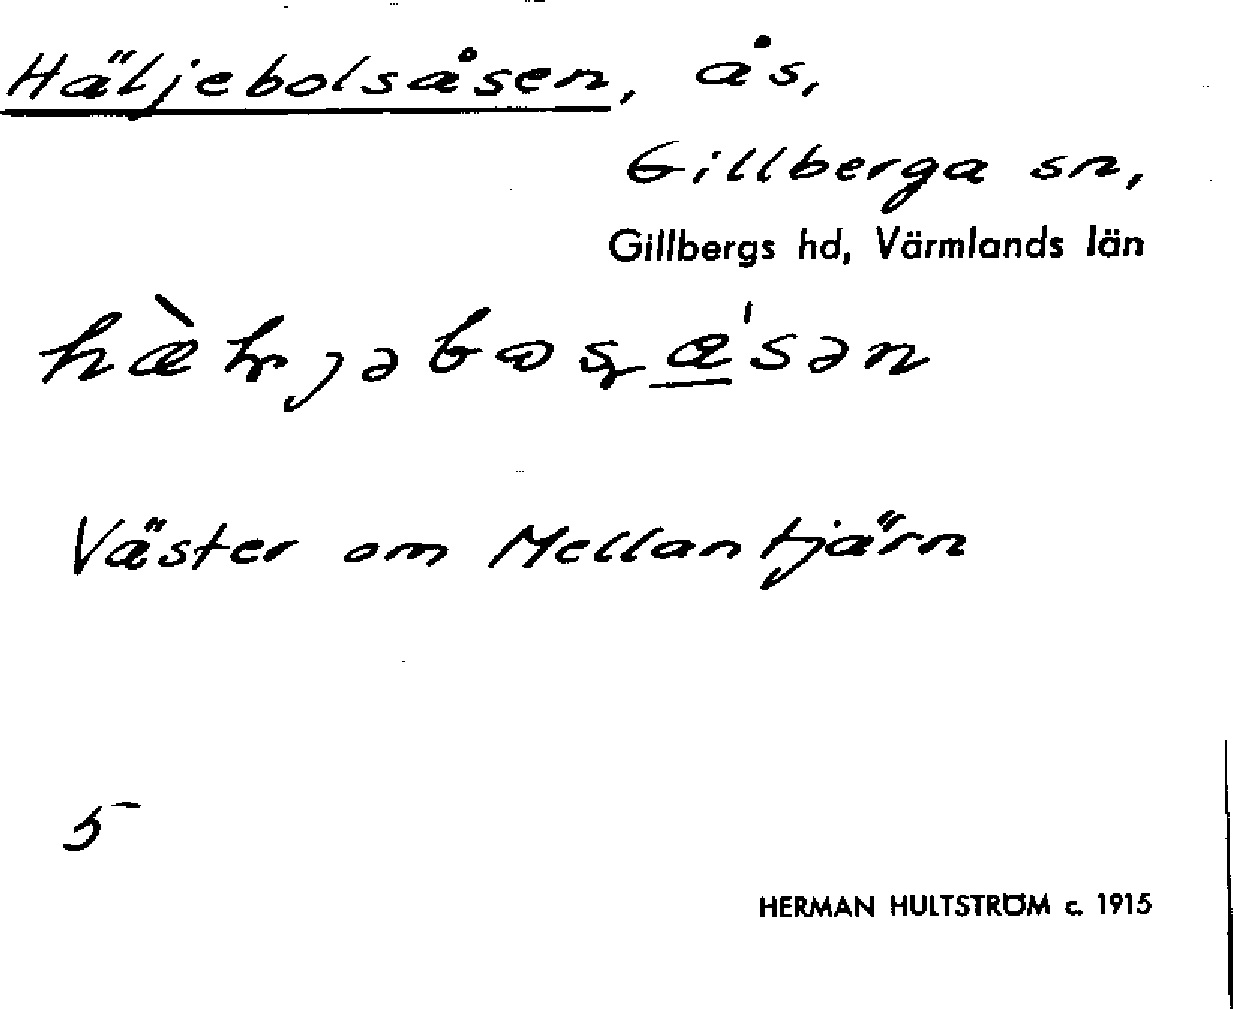 Häljebolsåsen, ås,
Gillberga sn,
Gillbergs hd, Värmlands län
Väster om Mellantjärn
5
HERMAN HULTSTRÖM c. 1915